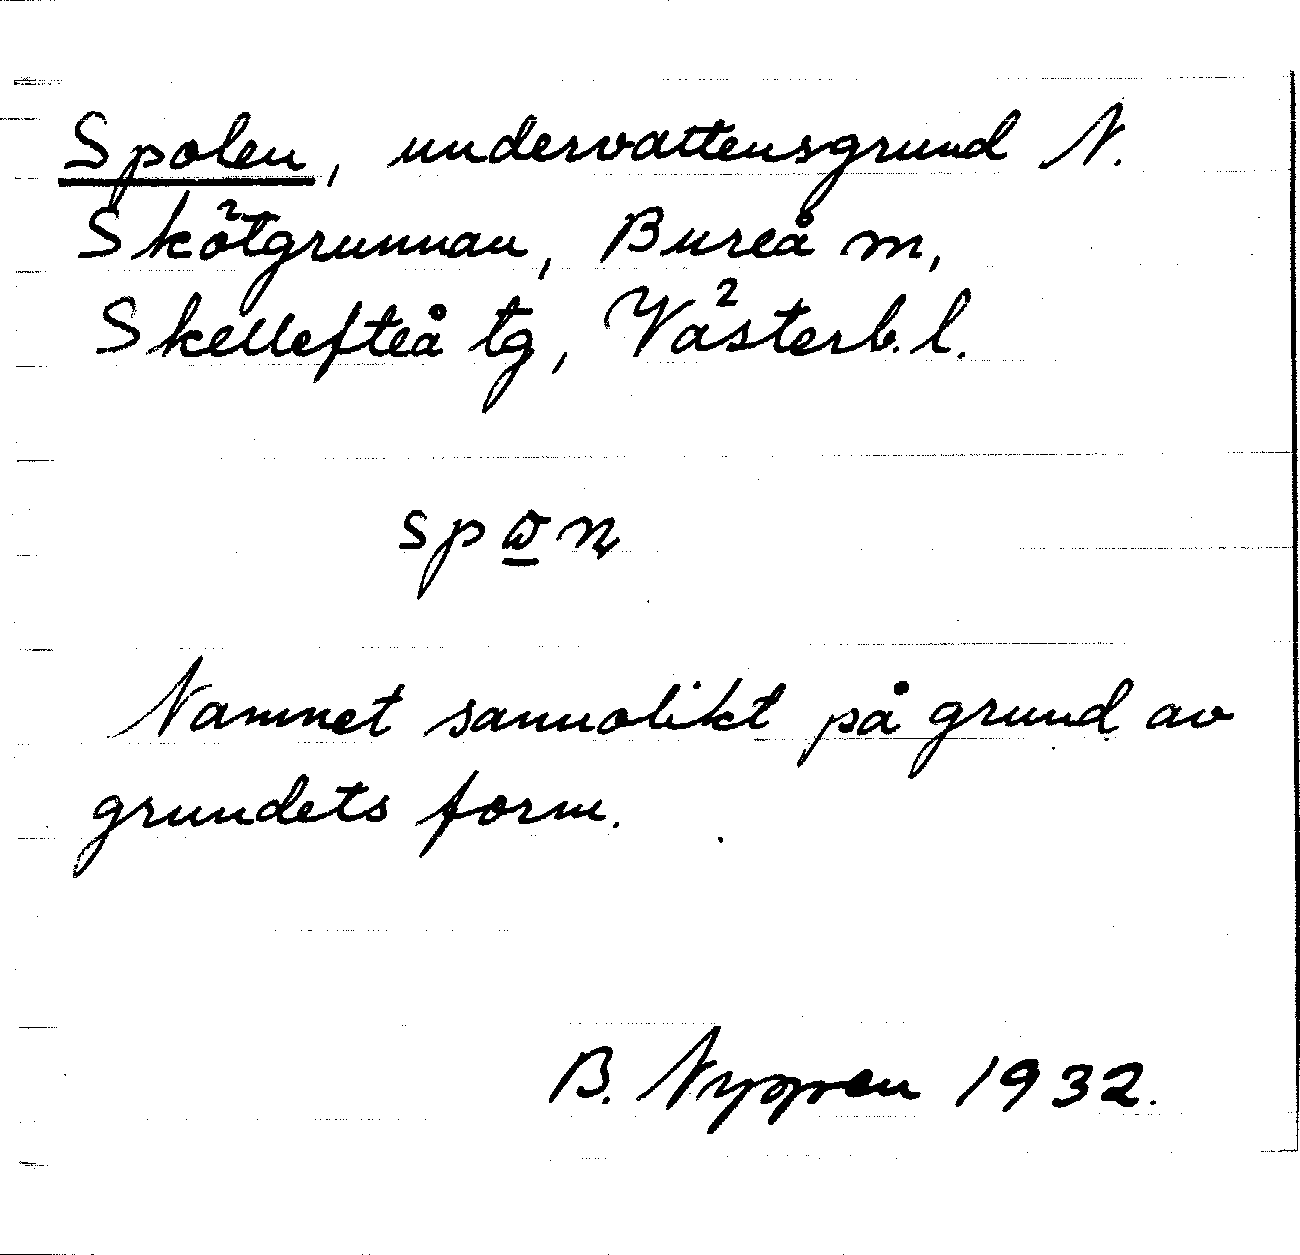 Spolen, undervattensgrund N.
Skötgrunnan, Bureå m,
Skellefteå tg, Västerb. l.
Namnet sannolikt på grund av
grundets form.
B. 1932.